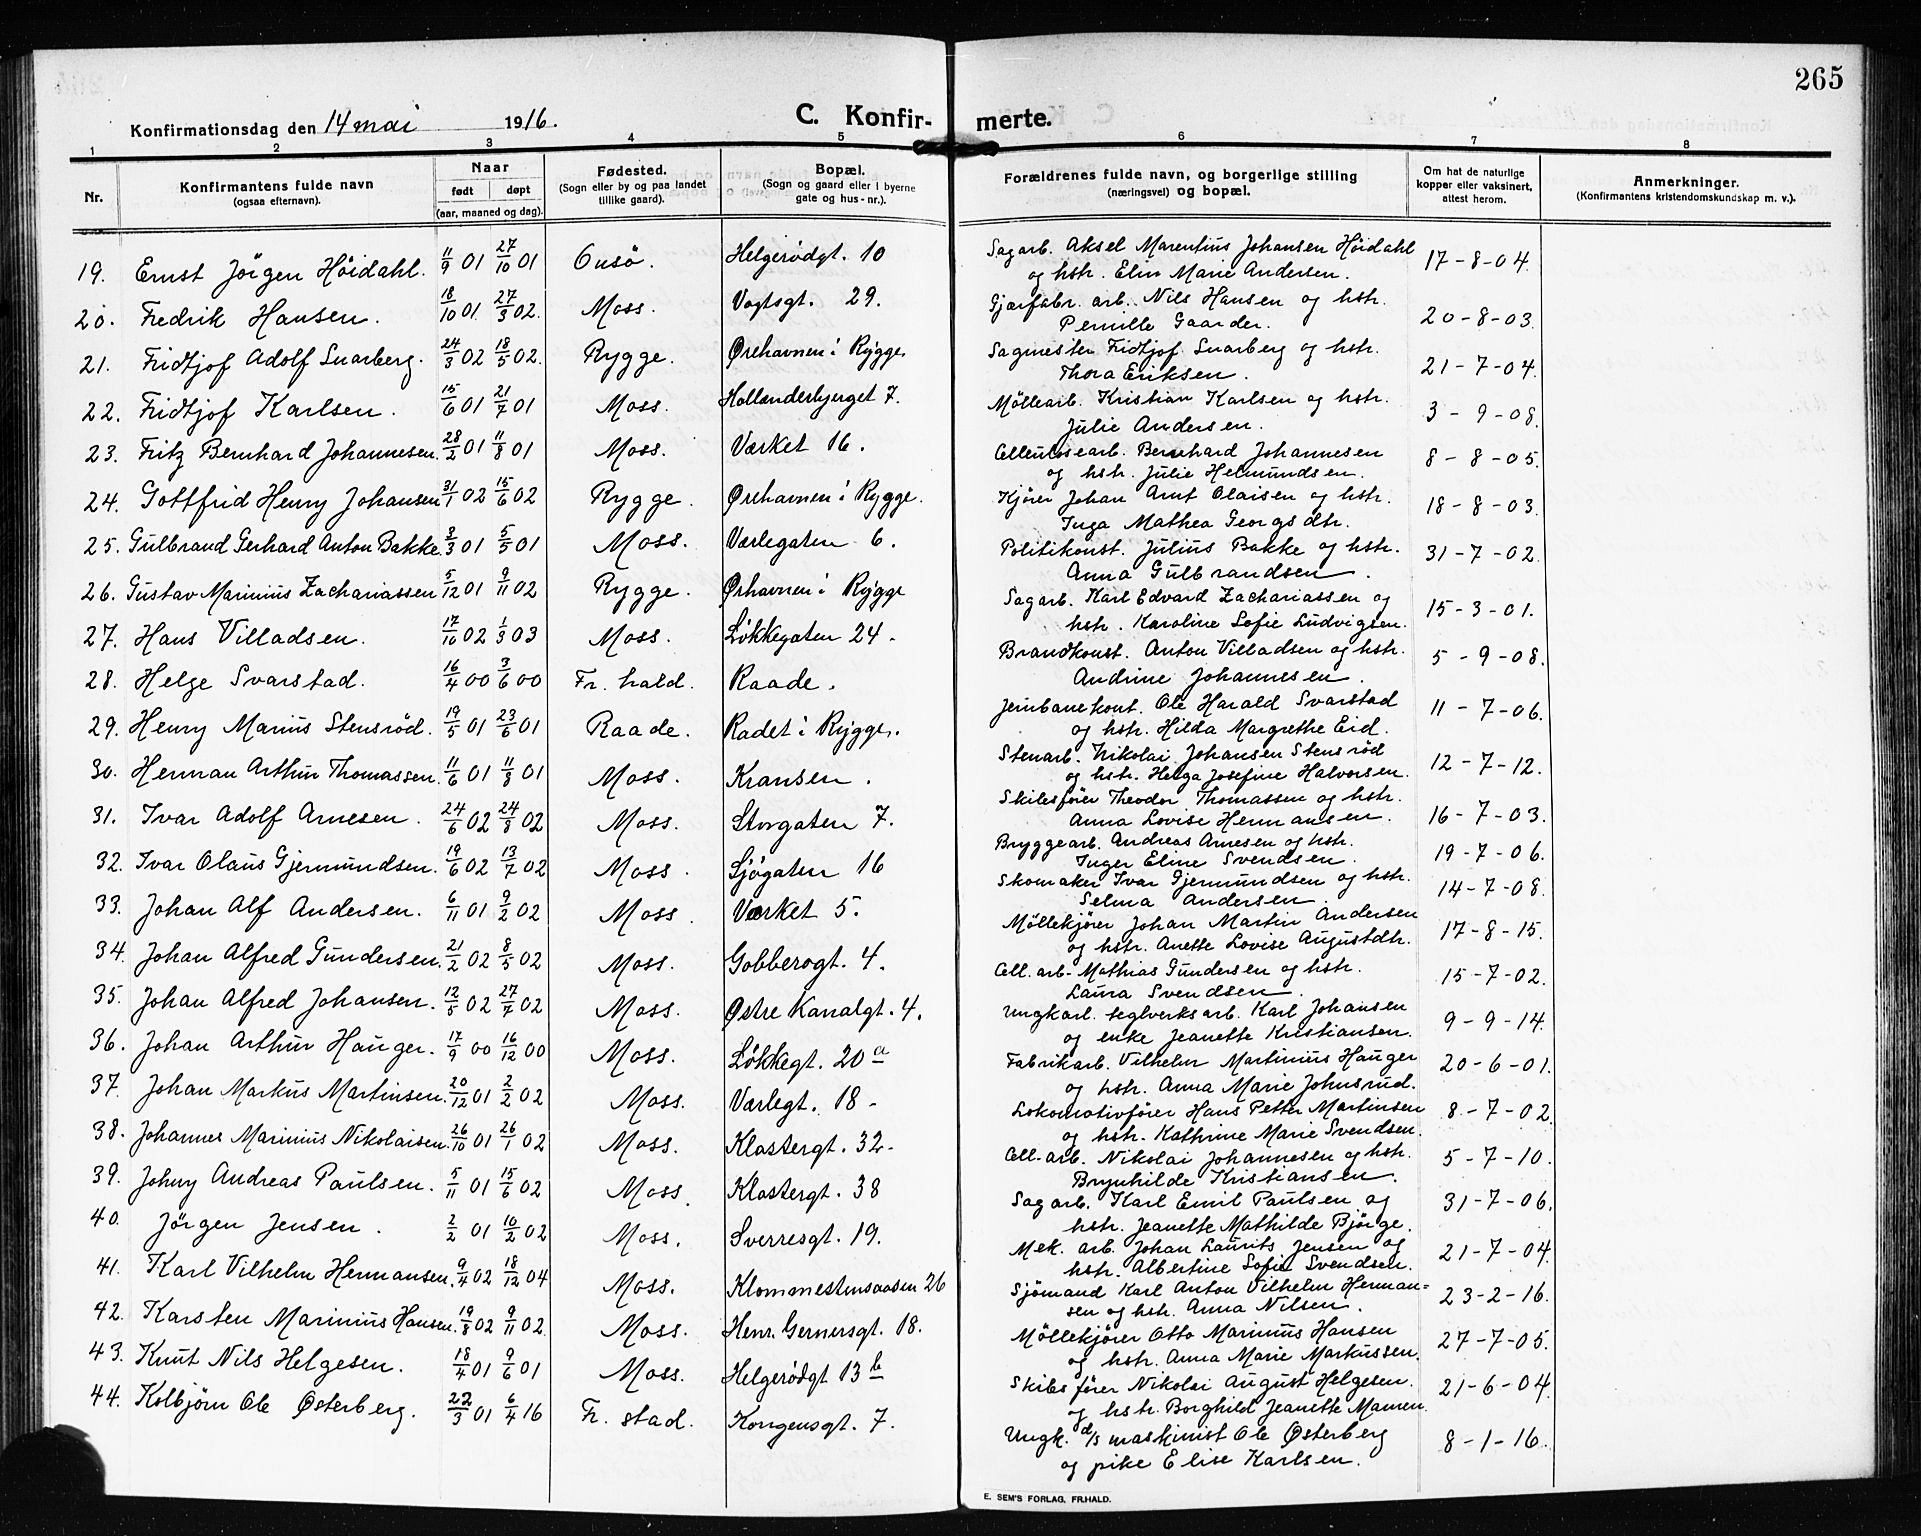 265
Konfirmationsdag den 14 mai 1916.
C. Konfir- merte.
1 2 3 4 5 6 7 8
Nr.
Konfirmantens fulde navn
(ogsaa efternavn).
Naar
født døpt
(aar, maaned og dag).
Fødested.
(Sogn eller by og paa landet
tillike gaard).
Bopæl.
(Sogn og gaard eller i byerne
gate og hus-nr.).
Forældrenes fulde navn, og borgerlige stilling
(næringsvei) og bopæl.
Om hat de naturlige
kopper eller vaksinert,
attest herom.
Anmerkninger.
(Konfirmantens kristendomskundskap m. v.).
19. Ernst Jörgen Höidahl. 11/9 01 27/10 01 Onsö. Helgerödgt. 10 Sagarb. Aksel Marentius Johansen Höidahl 17-8-04.
og hstr. Elin Marie Andersen.
20. Fredrik Hansen. 18/10 01. 27/3 02. Moss. Vogtsgt. 29. Gjærfabr. arb. Nils Hansen og hstr. 20-8-03.
Pernille Gaarder.
21. Fridtjof Adolf Snarberg. 24/3 02 18/5 02. Rygge. Ørehavnen i Rygge. Sagmester Fridtjof Snarberg og hstr. 21-7-04.
Thora Eriksen.
22. Fridtjof Karlsen. 15/6 01 21/7 01 Moss. Hollenderbjerget 7. Möllearb. Kristian Karlsen og hstr. 3-9-08.
Julie Andersen.
23. Fritz Bernhard Johannesen. 28/2 01 11/8 01 Moss. Værket 16. Cellulosearb. Bernhard Johannesen 8-8-05.
og hstr. Julie Helmundsen.
24. Gottfrid Henry Johansen 31/1 02 15/6 02 Rygge. Ørehavnen i Rygge. Kjörer Johan Arnt Olaisen og hstr. 18-8-03.
Inga Mathea Georgsdtr.
25. Gulbrand Gerhard Anton Bakke. 8/3 01 5/5 01 Moss. Værlegaten 6. Politikonst. Julius Bakke og hstr. 31-7-02.
Anna Gulbrandsen.
26. Gustav Marinius Zachariassen 5/12 01 9/11 02 Rygge. Ørhavnen i Rygge Sagarb. Karl Edvard Zachariassen og 15-3-01.
hstr. Karoline Sofie Ludvigsen.
27. Hans Villadsen. 17/10 02 1/3 03 Moss. Løkkegaten 24. Brandkonst. Anton Villadsen og hstr. 5-9-08.
Andrine Johannesen.
28. Helge Svarstad. 16/4 00 3/6 00 Fr. hald. Raade. Jernbanekont. Ole Harald Svarstad 11-7-06.
og hstr. Hilda Margrethe Eid.
29. Henry Marius Stensröd. 19/5 01 23/6 01 Raade. Radet i Rygge. Stenarb. Nikolai Johansen Stensröd 12-7-12.
og hstr. Helga Josefine Halvorsen.
30. Herman Arthur Thomassen. 11/6 01 11/8 01 Moss. Kransen. Skibsförer Theodor Thomassen og hstr. 16-7-03.
Anna Lovise Hermansen.
31. Ivar Adolf Arnesen. 24/6 02 24/8 02 Moss. Storgaten 7. Bryggearb. Andreas Arnesen og hstr. 19-7-06.
Inger Eline Svendsen.
32. Ivar Olaus Gjermundsen. 19/6 02 13/7 02 Moss. Sjøgaten 16 Skomaker Ivar Gjermundsen og hstr. 14-7-08.
Selma Andersen.
33. Johan Alf Andersen. 6/11 01 9/2 02 Moss. Værket 5. Möllekjörer Johan Martin Andersen 17-8-15.
og hstr. Anette Lovise Augustdtr.
34. Johan Alfred Gundersen. 21/2 02 8/5 02 Moss. Gobberogt. 4. Cell. arb. Mathias Gundersen og hstr. 15-7-02.
Laura Svendsen.
35. Johan Alfred Johansen. 12/5 02 27/7 02 Moss. Østre Kanalgt. 4. Ungkarl. teglverksarb. Karl Johansen 9-9-14.
og enke Jeanette Kristiansen.
36. Johan Arthur Hauger. 17/9 00 16/12 00 Moss. Løkkegt. 20 a Fabrikarb. Vilhelm Martinius Hauger 20-6-01.
og hstr. Anna Marie Johnsrud.
37. Johan Markus Martinsen. 20/12 01 2/2 02 Moss. Værlegt. 18 - Lokomotivförer Hans Petter Martinsen 8-7-02
og hstr. Kathrine Marie Svendsen.
38. Johannes Marinius Nikolaisen. 26/10 01 26/1 02 Moss. Klostergt. 32 - Cell-arb. Nikolai Johannesen og hstr. 5-7-10.
Brynhilde Kristiansen.
39. Johny Andreas Paulsen. 5/11 01 15/6 02 Moss. Klostergt. 38 Sagarb. Karl Emil Paulsen og 31-7-06.
hstr. Jeanette Mathilde Bjørge.
40. Jörgen Jensen. 2/2 01 10/2 02 Moss. Sverresgt. 19. Mek. arb. Johan Laurits Jensen og 21-7-04.
hstr. Albertine Sofie Svendsen.
41. Karl Vilhelm Hermansen. 9/4 02 18/12 04 Moss. Klommestensaasen 26 Sjömand Karl Anton Vilhelm Herman= 23-2-16.
sen og hstr. Anna Nilsen.
42. Karsten Marinius Hansen. 19/8 02 9/11 02. Moss. Henr. Gernersgt. 18. Möllekjörer Otto Marinius Hansen 27-7-05.
og hstr. Anna Marie Markussen.
43. Knut Nils Helgesen. 18/4 01 9/6 01 Moss. Helgerødgt 13 b Skibsförer Nikolai August Helgesen. 21-6-04.
og hstr. Borghild Jeanette Mamen.
44. Kolbjörn Ole Østerberg. 22/3 01 6/4 16 Fr. stad. Kongensgt. 7. Ungk. d/s maskinist Ole Østerberg 8-1-16.
og pike Elise Karlsen.
E. SEM'S FORLAG, FR.HALD.